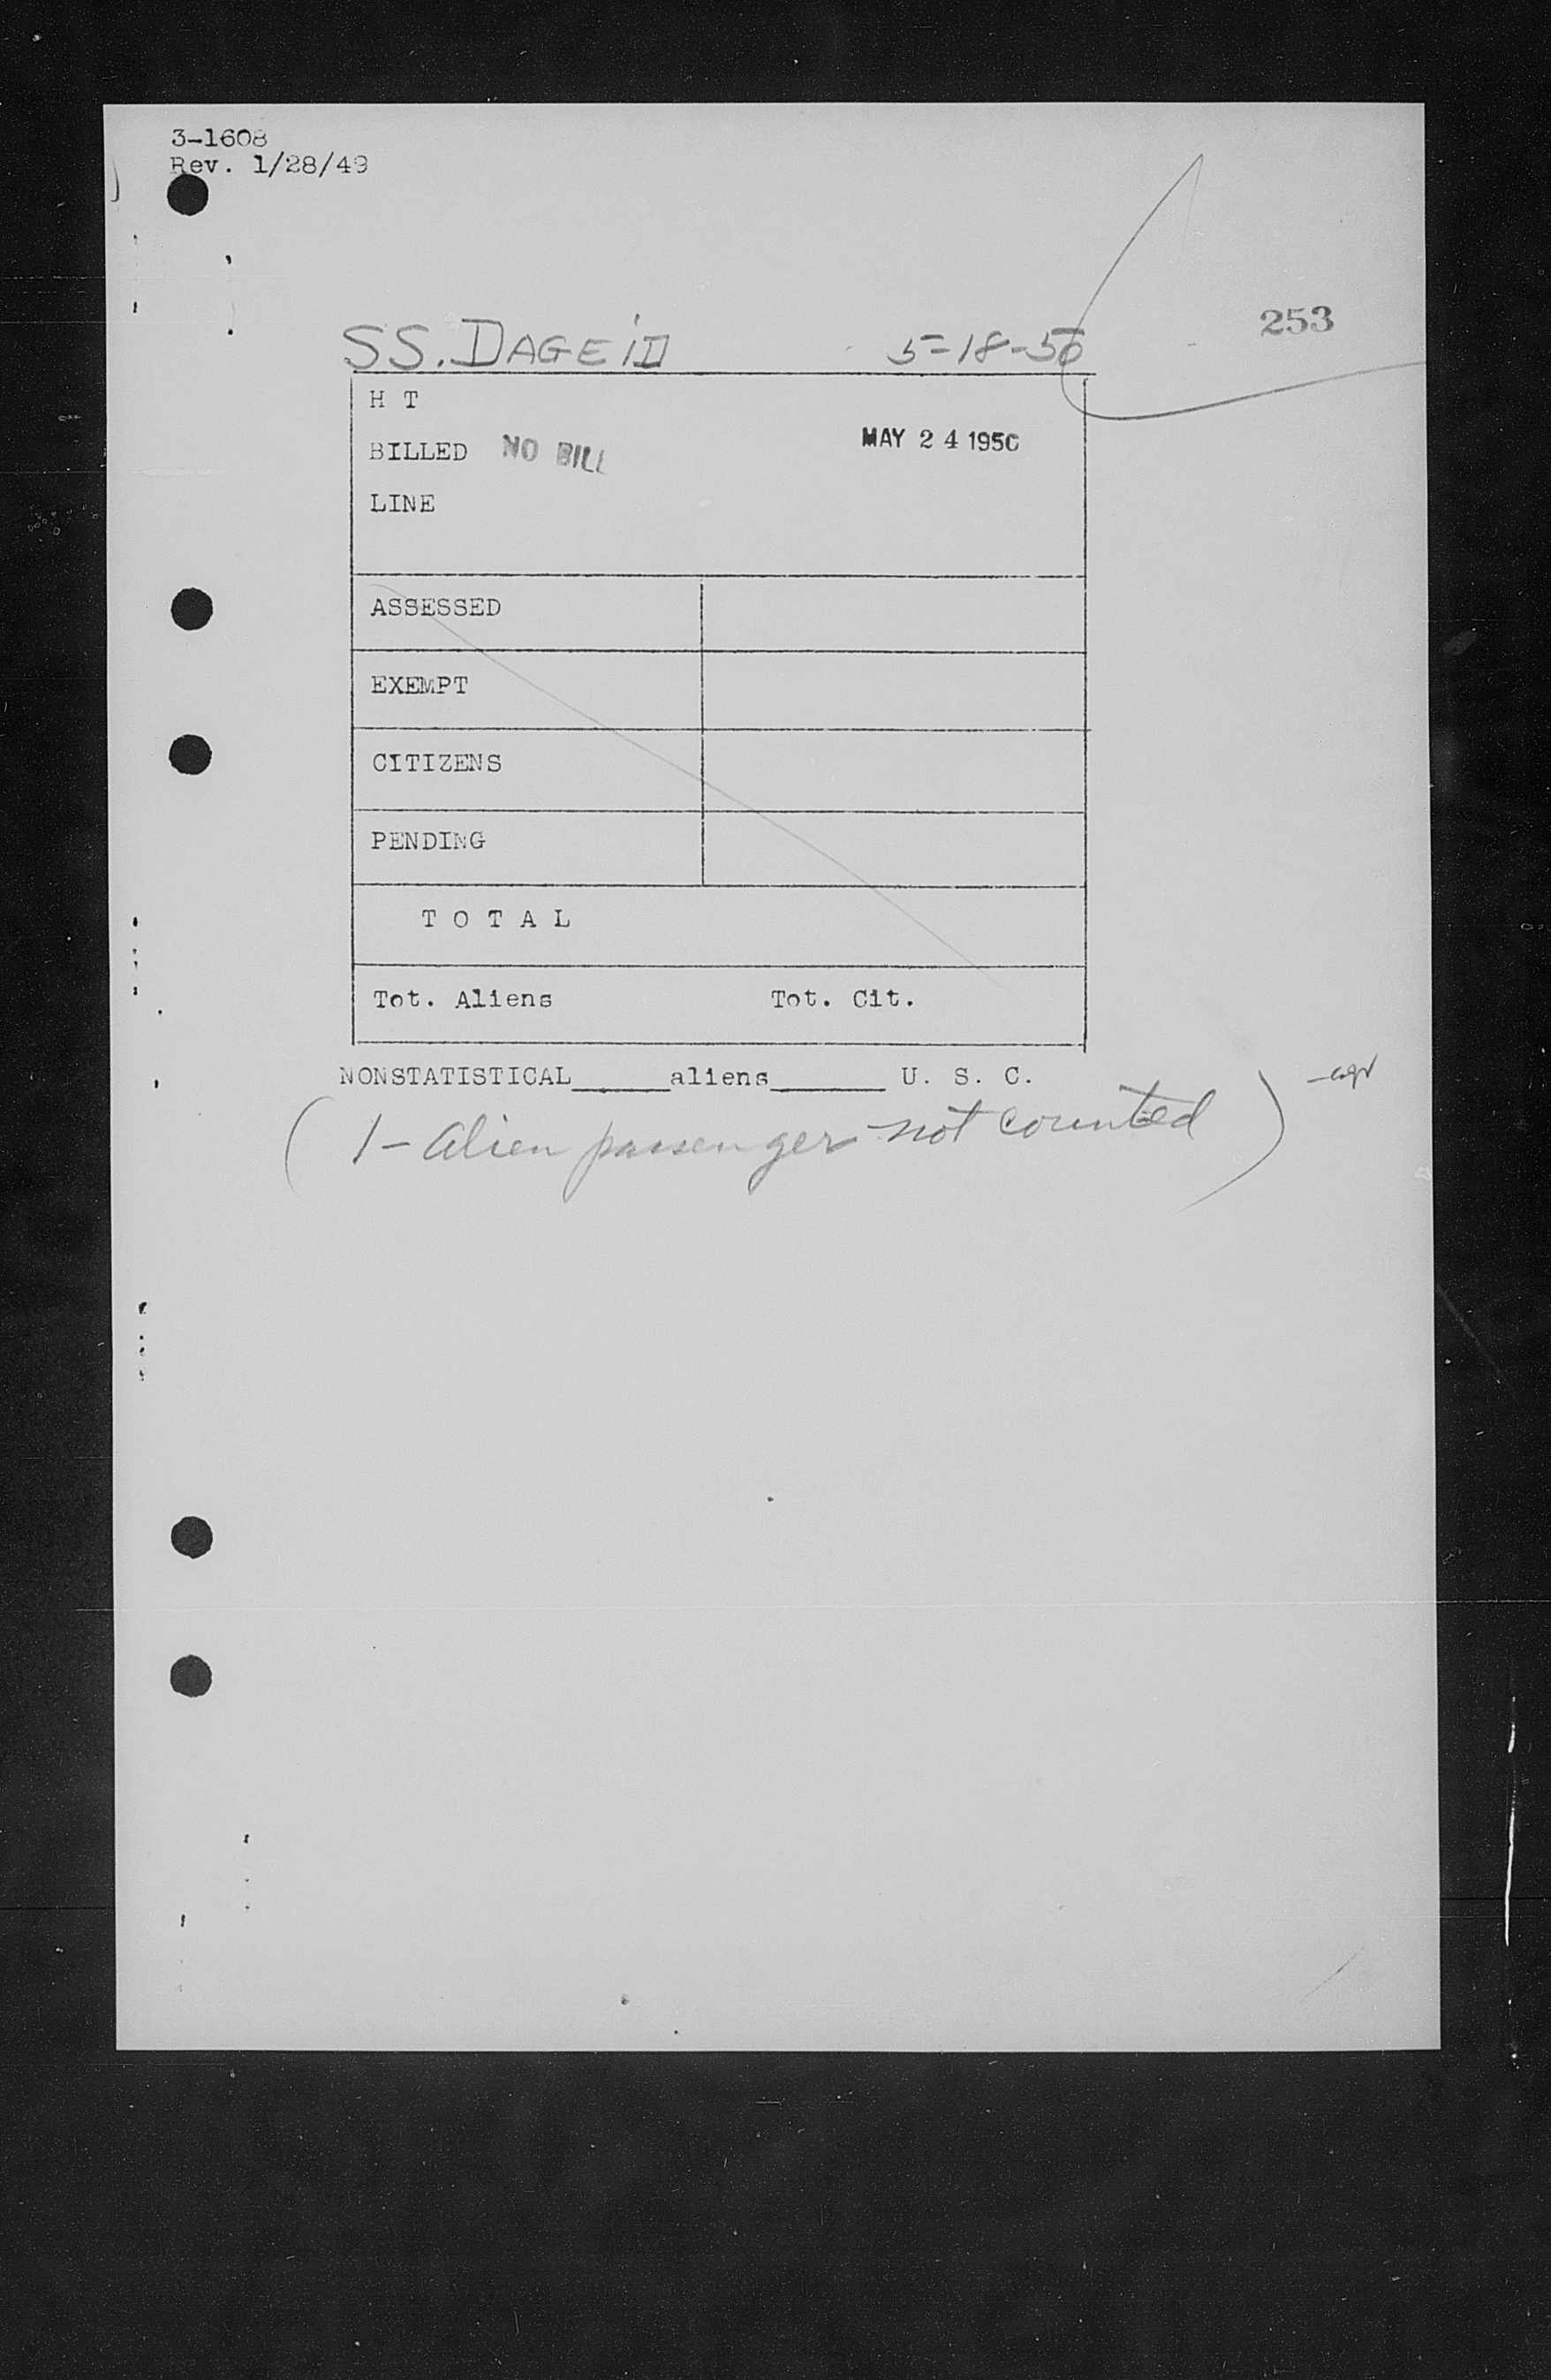 3-1608
Rev. 1/28/49
253
SS. DAGEiD 5-18-50
H T
BILLED NO BILL MAY 24 1950
LINE
ASSESSED
EXEMPT
CITIZENS
PENDING
T O T A L
Tot. Aliens Tot. Cit.
NONSTATISTICAL______aliens_______ U. S. C.
( 1- alien passenger not counted )